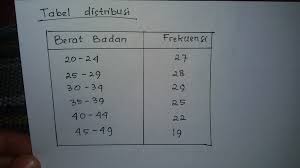 Tabel distribusi
Berat Badan Frekuensi
20-24 27
25-29 28
30-34 29
35-39 25
40-44 22
45-49 19